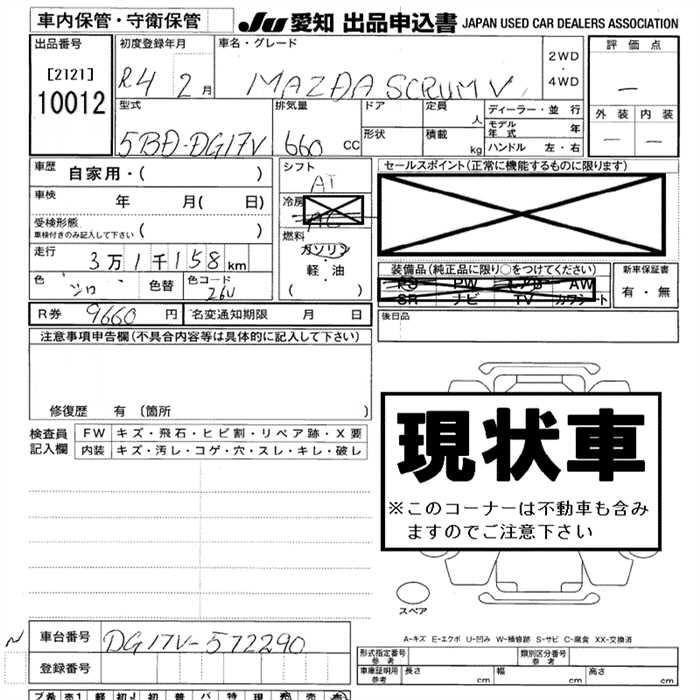 車内保管・守衛保管 JU 愛知 出品申込書 JAPAN USED CAR DEALERS ASSOCIATION
出品番号 初度登録年月 車名・グレード 評価点
[2121] R4 2月 MAZDA SCRUM V 2WD・4WD —
10012
型式 排気量 ドア 定員 人 ディーラー・並行 外装 内装
5BD-DG17V 660 CC 形状 積載 kg モデル年式 年 — —
ハンドル 左・右
車歴 自家用・( ) シフト セールスポイント(正常に機能するものに限ります)
AT
車検 年 月( 日) 冷房
AC
受検形態 車検付きのみ記入して下さい ( ) 燃料
走行 3万1千158km ガソリン・軽・油 装備品(純正品に限り○をつけてください) 新車保証書
( ) PS PW エアB AW 有・無
色 シロ 色替 色コード 26U SR ナビ TV カワシート
R券 9660円 名変通知期限 月 日 後日品
注意事項申告欄(不具合内容等は具体的に記入して下さい)
修復歴 有 (箇所 )
現状車
検査員記入欄 FW キズ・飛石・ヒビ割・リペア跡・X要
内装 キズ・汚レ・コゲ・穴・スレ・キレ・破レ
※このコーナーは不動車も含みますのでご注意下さい
スペア
A-キズ E-エクボ U-凹み W-補修跡 S-サビ C-腐食 XX-交換済
N 車台番号 DG17V-572290
形式指定番号 参考 類別区分番号 参考
登録番号 車庫証明用 参考 長さ cm 幅 cm 高さ cm